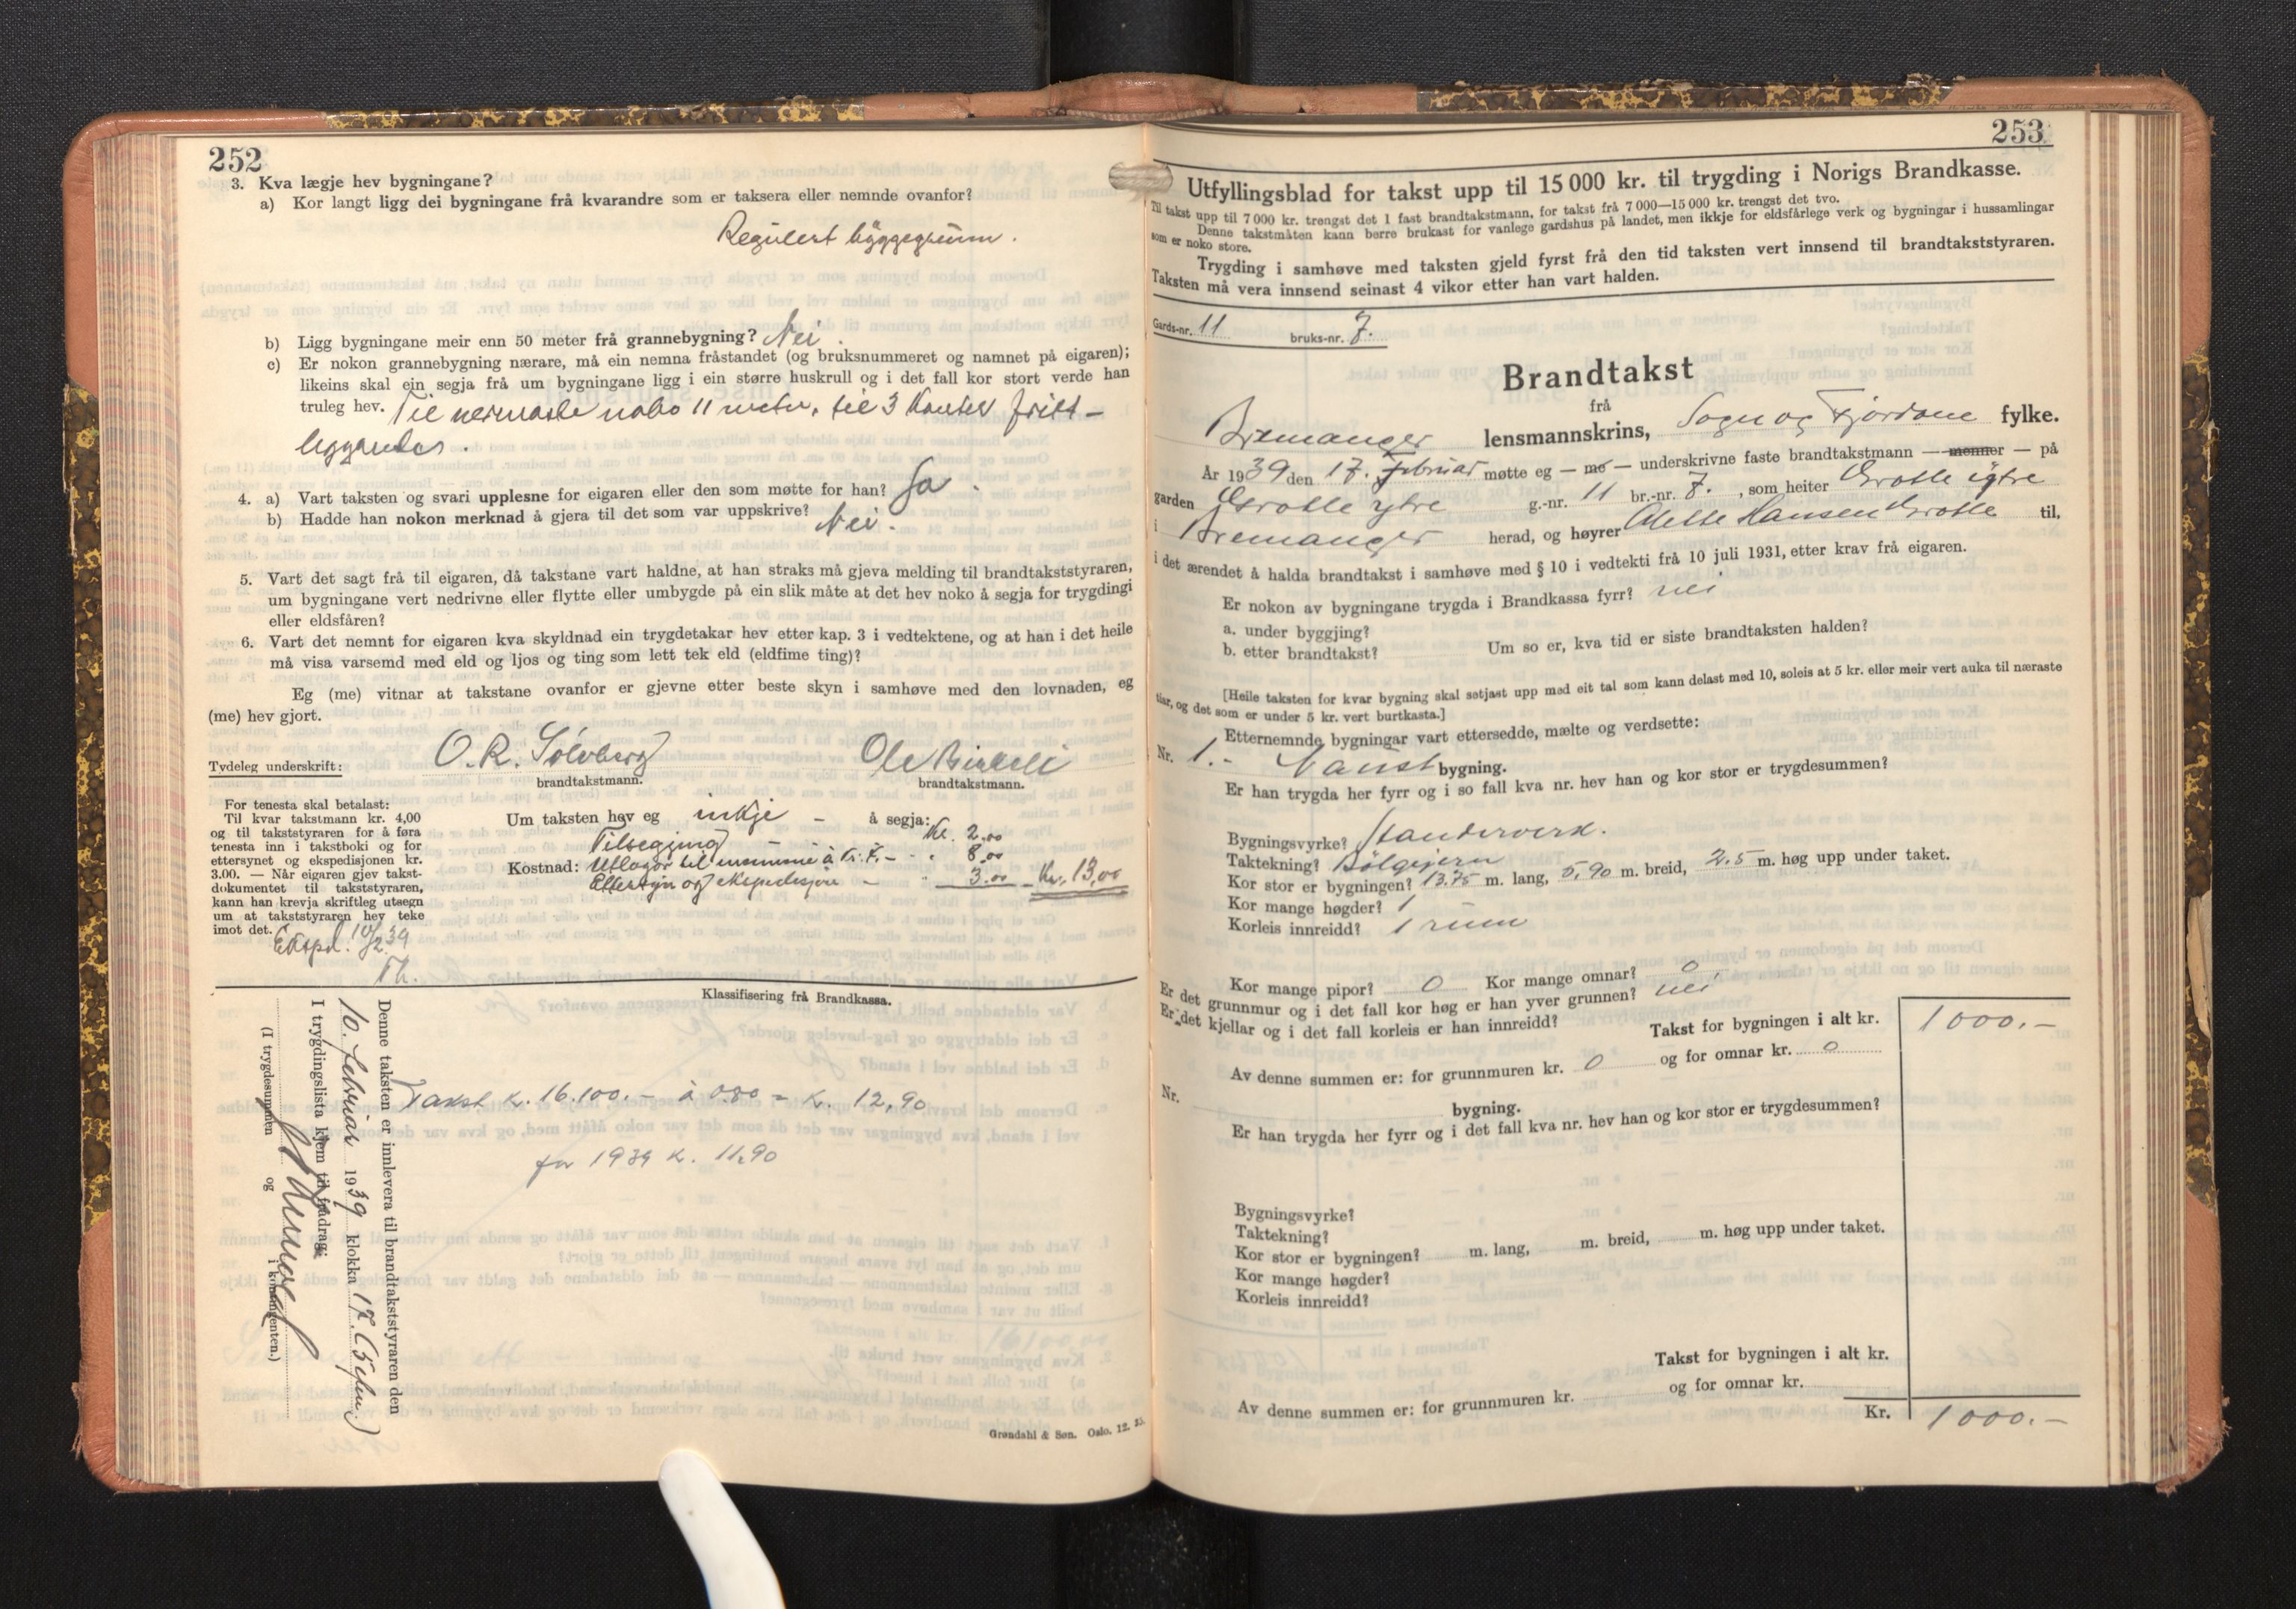 252
3. Kva lægje hev bygningane?
a) Kor langt ligg dei bygningane frå kvarandre som er taksera eller nemnde ovanfor?
Regulert byggegrunn.
b) Ligg bygningane meir enn 50 meter frå grannebygning? Nei.
c) Er nokon grannebygning nærare, må ein nemna fråstandet (og bruksnummeret og namnet på eigaren);
likeins skal ein segja frå um bygningane ligg i ein større huskrull og i det fall kor stort verde han
truleg hev. Til nermaste nabo 11 meter, til 3 kanter fritt-
liggandes.
4. a) Vart taksten og svari upplesne for eigaren eller den som møtte for han? Ja.
b) Hadde han nokon merknad å gjera til det som var uppskrive? Nei.
5. Vart det sagt frå til eigaren, då takstane vart haldne, at han straks må gjeva melding til brandtakststyraren,
um bygningane vert nedrivne eller flytte eller umbygde på ein slik måte at det hev noko å segja for trygdingi
eller eldsfåren?
6. Vart det nemnt for eigaren kva skyldnad ein trygdetakar hev etter kap. 3 i vedtektene, og at han i det heile
må visa varsemd med eld og ljos og ting som lett tek eld (eldfime ting)?
Eg (me) vitnar at takstane ovanfor er gjevne etter beste skyn i samhøve med den lovnaden, eg
(me) hev gjort.
Tydeleg underskrift: O. R. Sølvberg Ole Birkeli
brandtakstmann. brandtakstmann.
For tenesta skal betalast:
Til kvar takstmann kr. 4,00
og til takststyraren for å føra
tenesta inn i takstboki og for
ettersynet og ekspedisjonen kr.
3.00. — Når eigaren gjev takst-
dokumentet til takststyraren,
kann han krevja skriftleg utsegn
um at takststyraren hev teke
imot det.
Ekspd. 10/2 39
Th.
Um taksten hev eg inkje - å segja:
Tilsegjing - Kr. 2.00
Kostnad: Utlagor til mennene à kr. 4.- 8,00
Ettersyn og ekspedisjon - 3.00 Kr. 13,00
Klassifisering frå Brandkassa.
Takst K. 16.100.- à 0.80 = K. 12,90
for 1939 K. 11.90
Denne taksten er innlevera til brandtakststyraren den
10. februar 1939 klokka 17. (5 em.)
I trygdingslista kjem til frådrag:
(I trygdesummen og i kontingenten.)
Grøndahl & Søn. Oslo. 12.
253
Utfyllingsblad for takst upp til 15 000 kr. til trygding i Norigs Brandkasse.
Til takst upp til 7 000 kr. trengst det 1 fast brandtakstmann, for takst frå 7 000—15 000 kr. trengst det tvo.
Denne takstmåten kann berre brukast for vanlege gardshus på landet, men ikkje for eldsfårlege verk og bygningar i hussamlingar
som er noko store.
Trygding i samhøve med taksten gjeld fyrst frå den tid taksten vert innsend til brandtakststyraren.
Taksten må vera innsend seinast 4 vikor etter han vart halden.
Gards-nr. 11 bruks-nr. 7.
Brandtakst
frå
Bremanger lensmannskrins, Sogn og Fjordane fylke.
År 1939 den 17. februar møtte eg — me — underskrivne faste brandtakstmann — menner — på
garden Grotle ytre g.-nr. 11 br.-nr. 7. , som heiter Grotle ytre
i Bremanger herad, og høyrer Olette Hansen Grotle til,
i det ærendet å halda brandtakst i samhøve med § 10 i vedtekti frå 10 juli 1931, etter krav frå eigaren.
Er nokon av bygningane trygda i Brandkassa fyrr? nei
a. under byggjing?
b. etter brandtakst? Um so er, kva tid er siste brandtaksten halden?
[Heile taksten for kvar bygning skal setjast upp med eit tal som kann delast med 10, soleis at 5 kr. eller meir vert auka til næraste
tiar, og det som er under 5 kr. vert burtkasta.]
Etternemnde bygningar vart ettersedde, mælte og verdsette:
Nr. 1.- Naust bygning.
Er han trygda her fyrr og i so fall kva nr. hev han og kor stor er trygdesummen?
Bygningsvyrke? Standerverk.
Taktekning? Bølgejern
Kor stor er bygningen? 13.75 m. lang, 5,90 m. breid, 2.5 m. høg upp under taket.
Kor mange høgder? 1
Korleis innreidd? 1 rum
Kor mange pipor? 0 Kor mange omnar? 0
Er det grunnmur og i det fall kor høg er han yver grunnen? nei
Er det kjellar og i det fall korleis er han innreidd?
Takst for bygningen i alt kr. 1000.-
Av denne summen er: for grunnmuren kr. 0 og for omnar kr. 0
Nr. bygning.
Er han trygda her fyrr og i det fall kva nr. hev han og kor stor er trygdesummen?
Bygningsvyrke?
Taktekning?
Kor stor er bygningen? m. lang, m. breid, m. høg upp under taket.
Kor mange høgder?
Korleis innreidd?
Takst for bygningen i alt kr.
Av denne summen er: for grunnmuren kr. og for omnar kr.
Kr. 1000.-